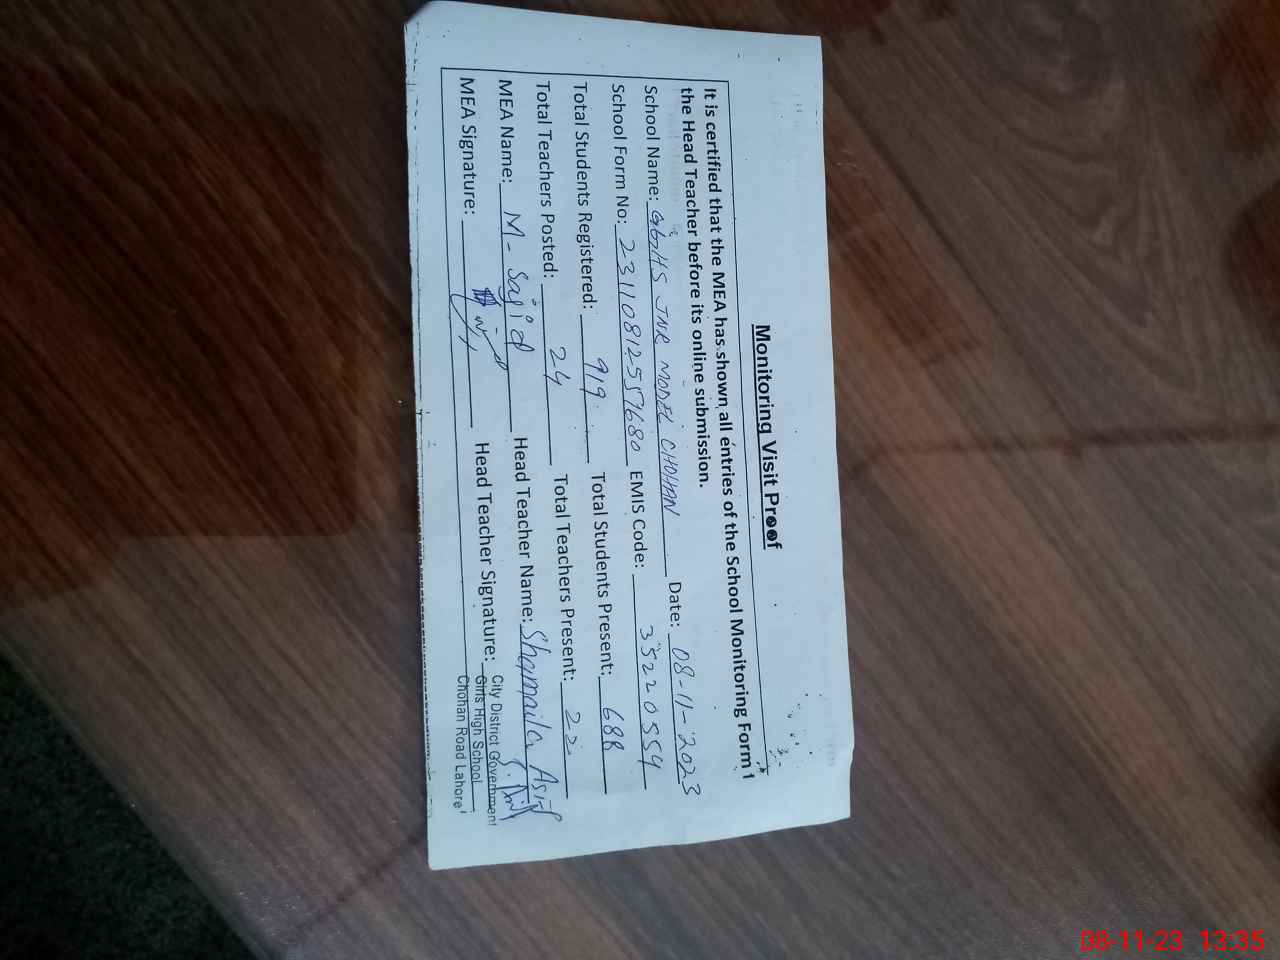 Monitoring Visit Proof
It is certified that the MEA has shown all entries of the School Monitoring Form
the Head Teacher before its online submission.
School Name: GGHS JNR MODEL CHOHAN Date: 08-11-2023
School Form No: 23110812557680 EMIS Code: 35220554
Total Students Registered: 919 Total Students Present: 688
Total Teachers Posted: 24 Total Teachers Present: 22
MEA Name: M. Sajid Head Teacher Name: Shamaila Asif
MEA Signature: Head Teacher Signature:
City District Government
Girls High School
Chohan Road Lahore
08-11-23 13:35